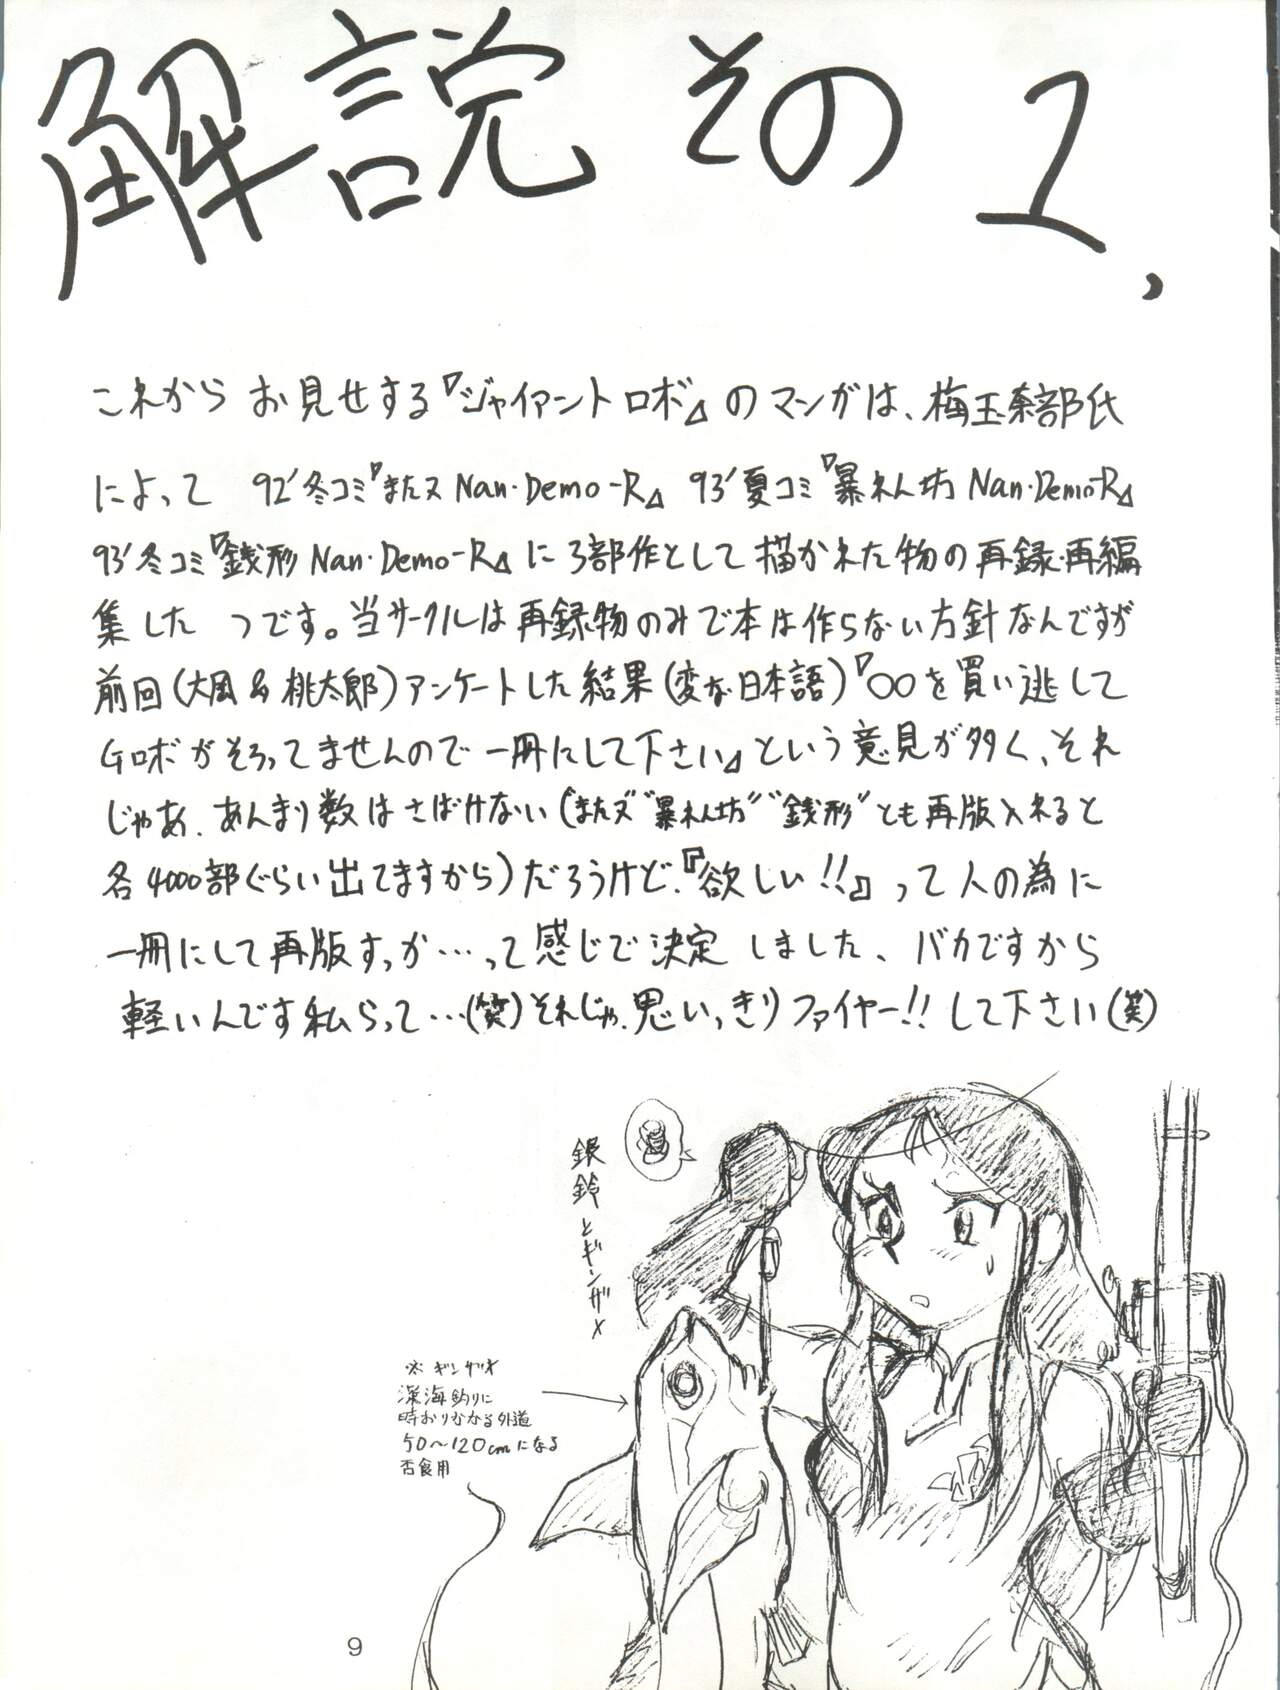 解説 その 1、
これから お見せする『ジャイアントロボ』のマンガは、梅玉奈部氏
によって 92'冬コミ『またヌNan・Demo-R』93'夏コミ『暴れん坊Nan・Demo-R』
93'冬コミ『銭形Nan・Demo-R』に3部作として描かれた物の再録・再編
集した つです。当サークルは再録物のみで本は作らない方針なんですが
前回(大風&桃太郎)アンケートした結果(変な日本語)『〇〇を買い逃して
Gロボがそろってませんので一冊にして下さい』という意見が多く、それ
じゃあ、あんまり数はさばけない("またヌ""暴れん坊""銭形"とも再版入れると
各4000部ぐらい出てますから)だろうけど、『欲しい!!』って人の為に
一冊にして再版すっか…って感じで決定しました、バカですから
軽いんです私らって…(笑)それじゃ、思いっきりファイヤー!!して下さい(笑)
銀鈴とギンザメ
※ギンザメ
深海釣りに
時おりかかる外道
50〜120cmになる
否食用
9